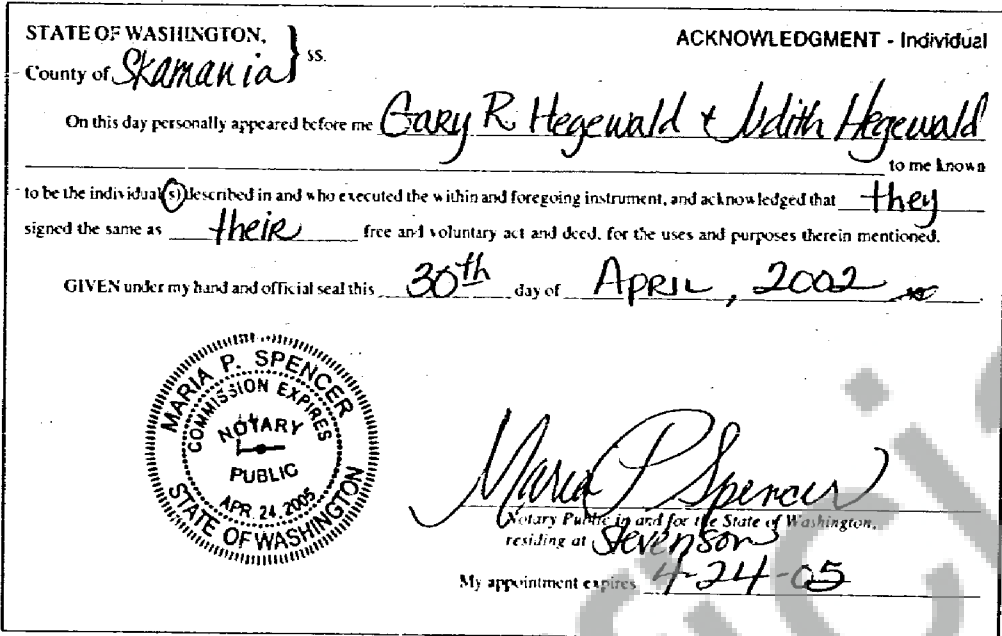 STATE OF WASHINGTON,
ACKNOWLEDGMENT - Individual
County of Skamania
ss.
On this day personally appeared before me Gary R. Hegewald + Judith Hegewald
to me known
to be the individual(s) described in and who executed the within and foregoing instrument, and acknowledged that they
signed the same as their free and voluntary act and deed, for the uses and purposes therein mentioned.
GIVEN under my hand and official seal this 30th day of April, 2002
MARIA P. SPENCER
COMMISSION EXPIRES
NOTARY
PUBLIC
APR. 24, 2005
STATE OF WASHINGTON
Maria P Spencer
Notary Public in and for the State of Washington,
residing at Stevenson
My appointment expires 4-24-05